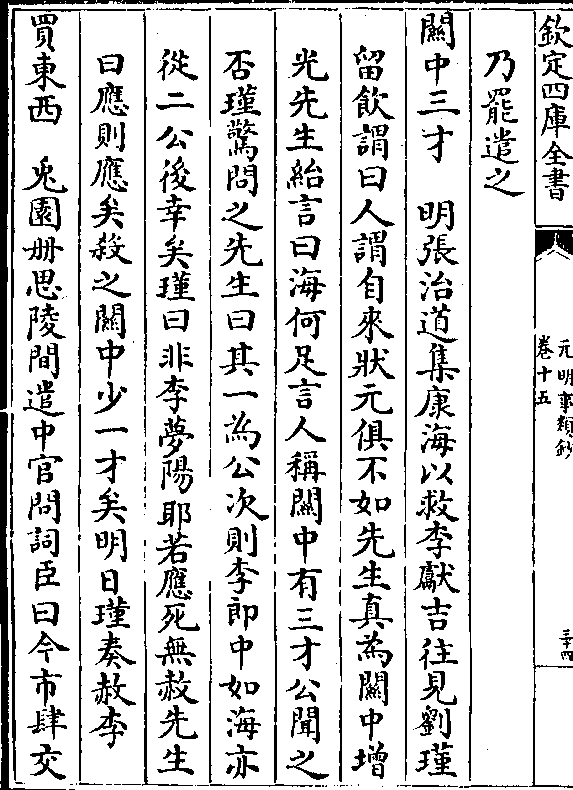 欽定四庫全書
元明事類鈔
卷十五
三十四
乃罷遣之
關中三才　明張治道集康海以救李獻吉往見劉瑾
留飲謂曰人謂自來狀元俱不如先生真為關中增
光先生紿言曰海何足言人稱關中有三才公聞之
否瑾驚問之先生曰其一為公次則李郎中如海亦
從二公後幸矣瑾曰非李夢陽耶若應死無赦先生
曰應則應矣殺之關中少一才矣明日瑾奏赦李
買東西　兎園册思陵間遣中官問詞臣曰今市肆交